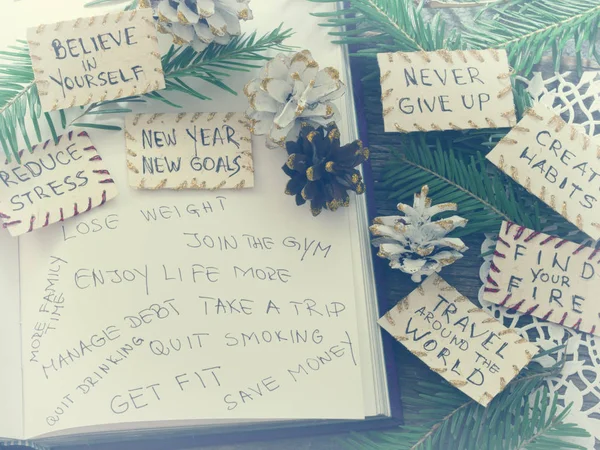 BELIEVE
IN
YOURSELF
NEVER
GIVE UP
NEW YEAR
NEW GOALS
REDUCE
STRESS
CREATE
HABITS
LOSE WEIGHT
JOIN THE GYM
ENJOY LIFE MORE
MORE FAMILY
TIME
MANAGE DEBT
TAKE A TRIP
QUIT SMOKING
QUIT DRINKING
GET FIT
SAVE MONEY
FIND
YOUR
FIRE
TRAVEL
AROUND THE
WORLD